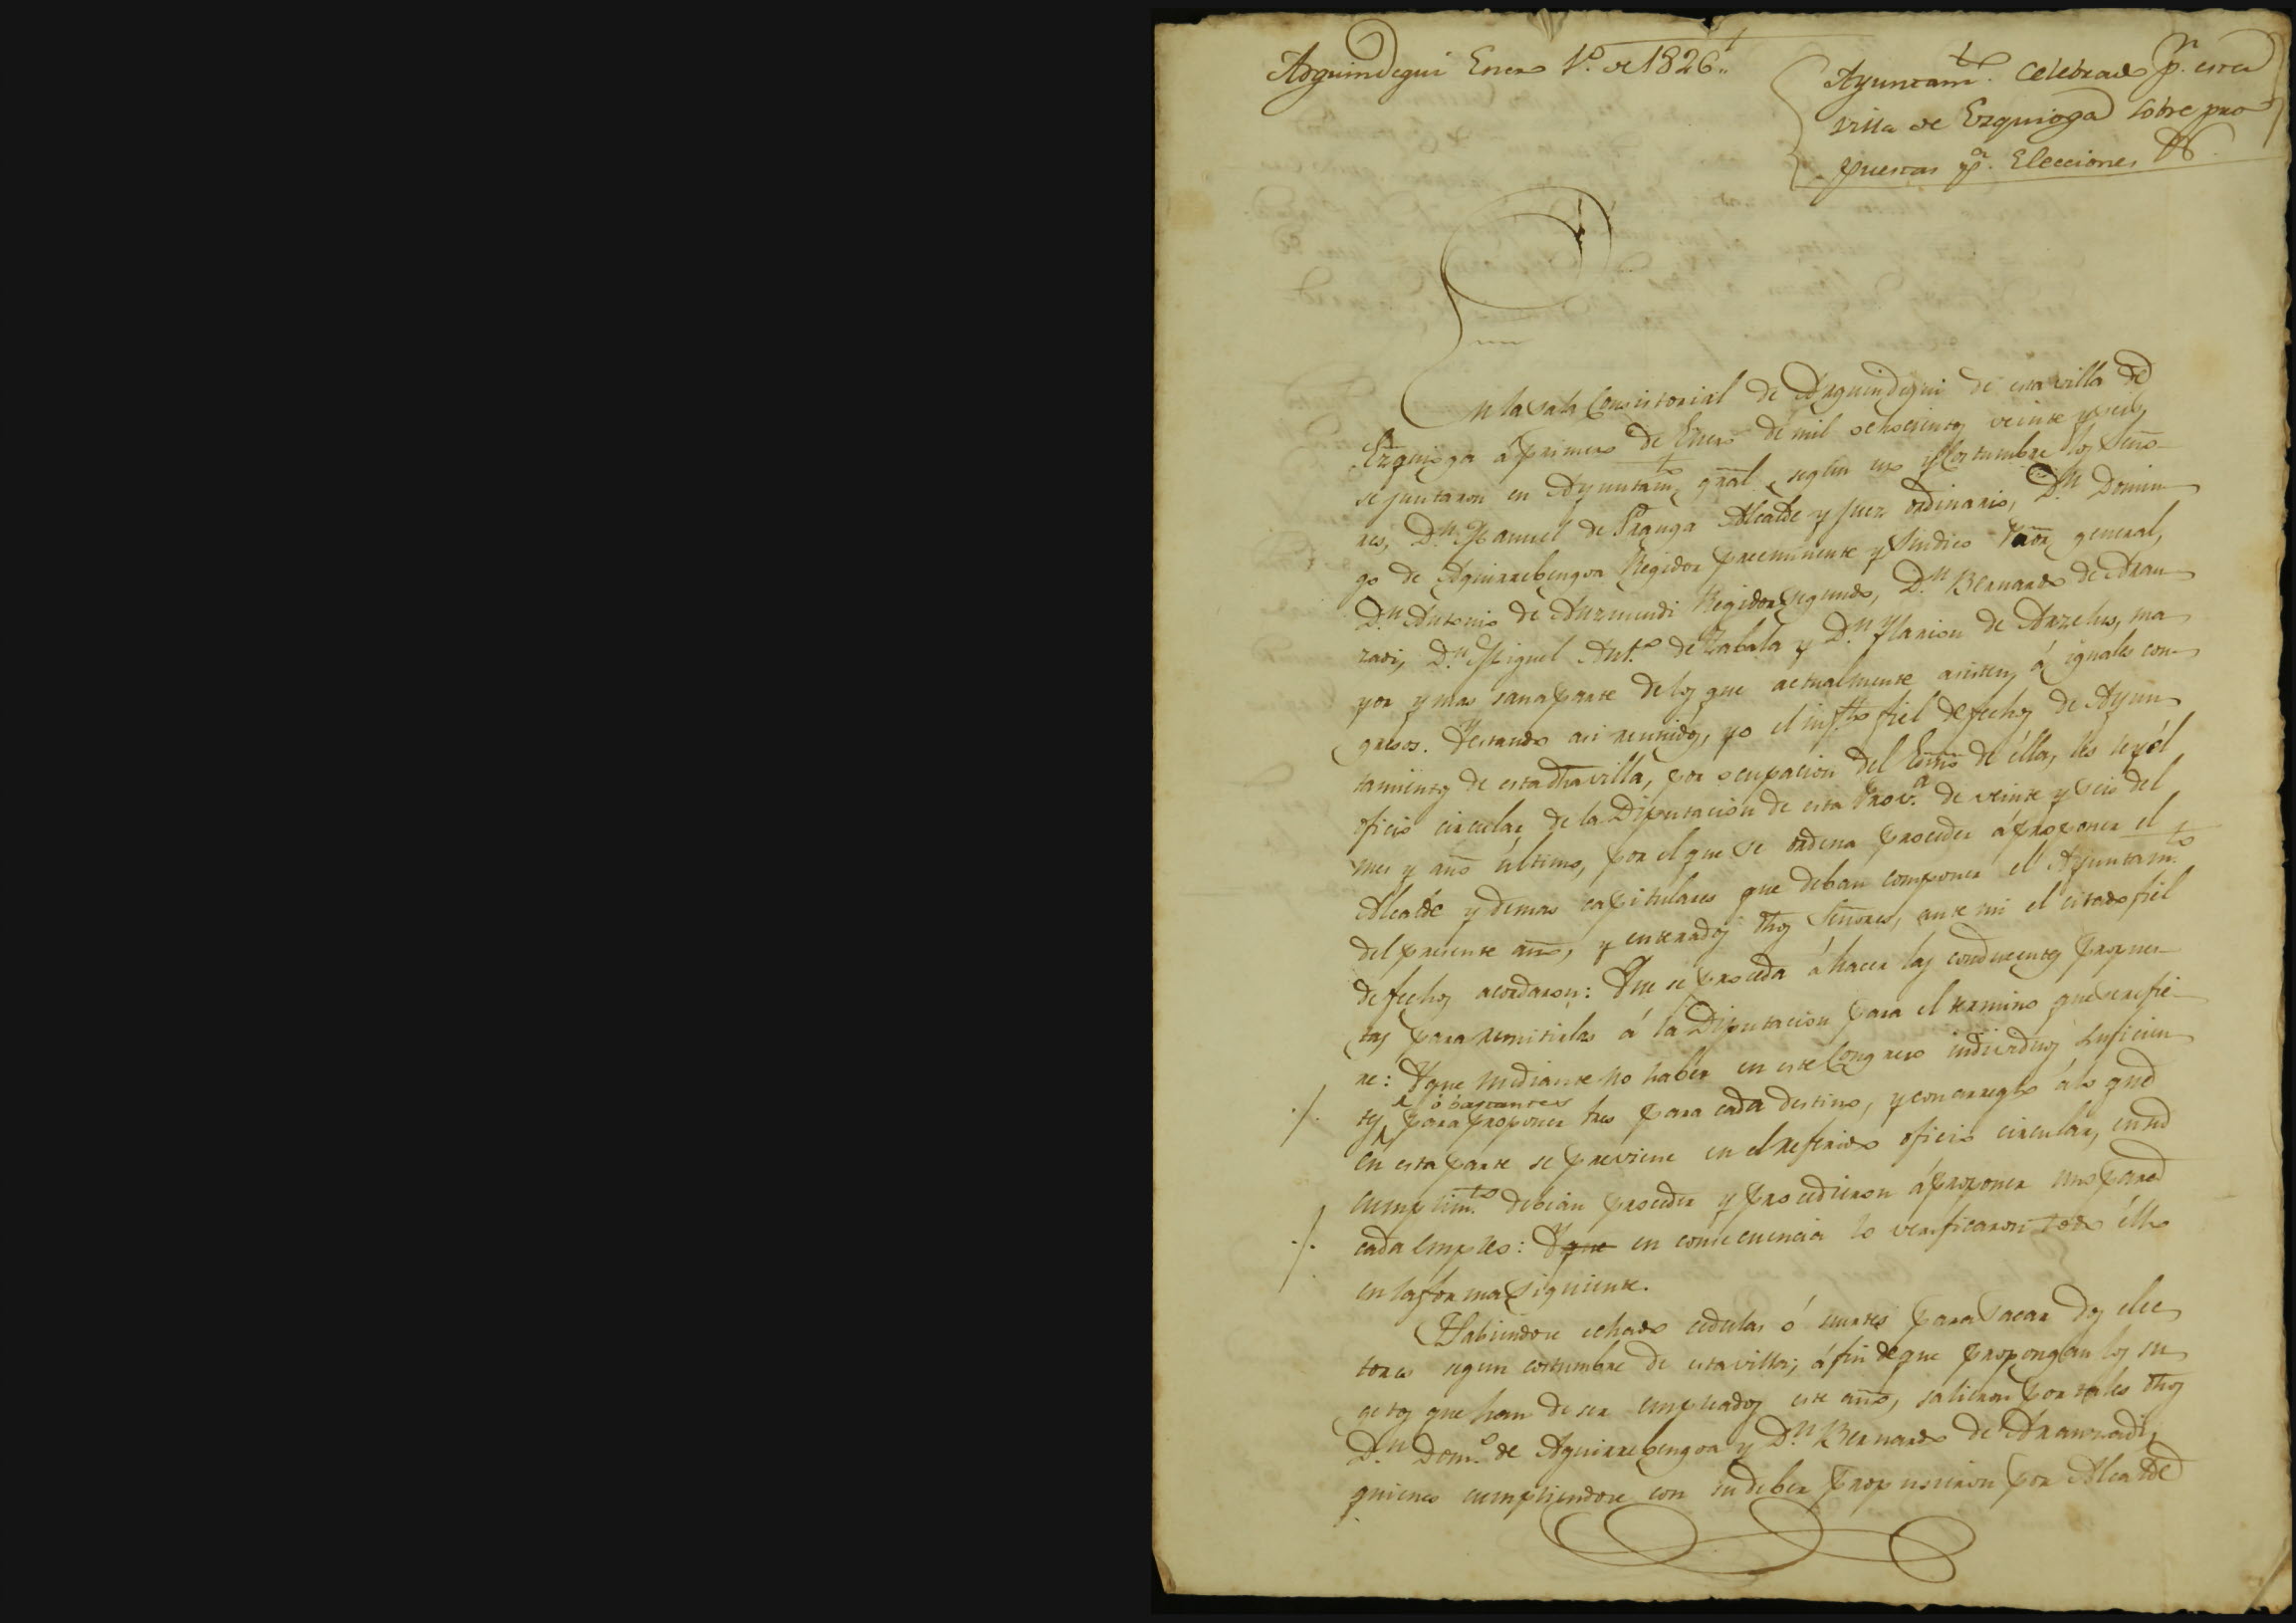 Arguindegui Enero 1º. de 1826..
Ayuntamto. celebrado pr. esta
villa de Ezquioga sobre pro
puestas pa. Elecciones &.
En la sala Consistorial de Arguindegui de esta villa de
Ezquioga á primero de Enero de mil ochocientos veinte y seis,
se juntaron en Ayuntamto. gral, segun uso y costumbre los Seño-
res, Dn. Manuel de Alcalde y Juez ordinario, Dn. Domin-
go de Aguirrebengoa Regidor preeminente y Sindico Pror general,
Dn. Antonio de Aurmendi Regidor segundo, Dn. Bernardo de Aran-
zadi, Dn. Miguel Anto. de Zabala y Dn. Ylarion de Arzelus, ma-
yor y mas sana parte de los que actualmente asisten á iguales con-
gresos. Y estando asi reunidos, yo el infrto fiel de fechos de Ayun-
tamientos de esta dha villa, por ocupacion del Esno de élla, les leyó el
oficio circular de la Diputacion de esta Prova. de veinte y seis del
mes y año último, por el que se ordena proceder á proponer el
Alcalde y demas capitulares que deban componer el Ayuntamto.
del presente año, y enterados dhos Señores, ante mi el citado fiel
de fechos acordaron: Que se proceda á hacer las conducentes propues-
tas para remitirlas á la Diputacion para el termino que se refie-
re: Y que mediante no haber en este Congreso individuos suficien-
ó bastantes
tes para proponer tres para cada destino, y con arreglo á lo que
en esta parte se previene en el referido oficio circular, en su
cumplimto. debian proceder y procedieron á proponer uno para
cada empleo: Y que en consecuencia lo verificaron todo éllo
en la forma siguiente.
Habiendose echado cedulas ó suertes para sacar dos elec-
tores segun costumbre de esta villa; á fin de que propongan los su-
getos que han de ser empleados este año, salieron por tales dhos
Dn. Domo. de Aguirrebengoa y Dn. Bernardo de Aranzadi,
quienes cumpliendose con su deber propusieron por Alcalde